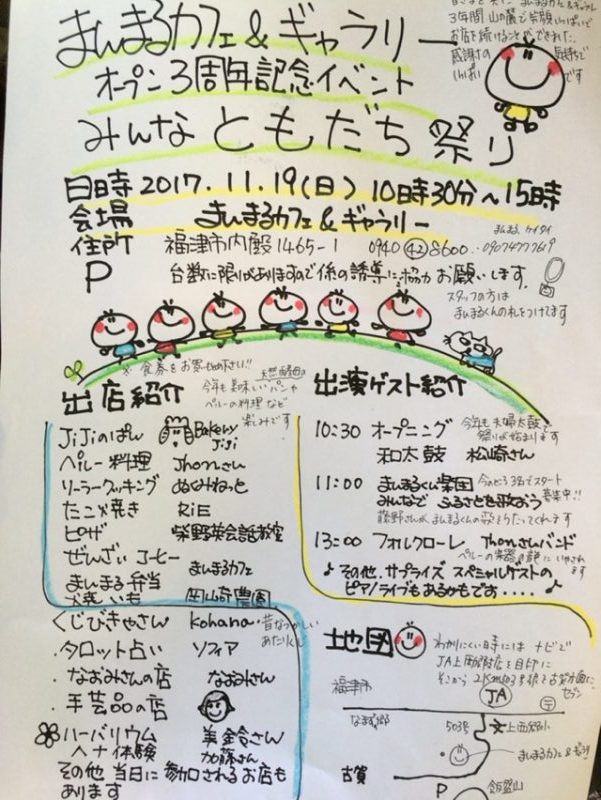 まんまるカフェ&ギャラリー
3年間 山の麓で笑顔いっぱいで
お店を続けることができました
感謝の気持ちで
いっぱいです
オープン3周年記念イベント
みんな ともだち 祭り
日時 2017.11.19(日) 10時30分〜15時
会場 まんまるカフェ&ギャラリー
住所 福津市内殿1465-1 0940 42 8600
まんまる ケイタイ
09074777619
P 台数に限りがありますので係の誘導に協力お願いします。
スタッフの方は
まんまるくんの札をつけてます
※食券をお買い求め下さい!!
出店紹介
天然酵母の
今年も美味しいパンや
ペルーの料理など
楽しみです
JiJiのぱん Bakery JiJi
ペルー料理 Jhonさん
ソーラークッキング ぬくみねっと
たこ焼き RiE
ピザ 柴野英会話教室
ぜんざい コーヒー
まんまる弁当 まんまるカフェ
焼きいも 岡山奇農園
くじびきやさん kohana
昔なつかしい
あたりくじ
・タロット占い ソフィア
・なおみさんの店 なおみさん
・手芸品の店
ハーバリウム 美鈴さん
ヘナ体験 加藤さん
その他 当日に参加されるお店も
あります
出演ゲスト紹介
10:30 オープニング 今年も夫婦太鼓で
祭りが始まります
和太鼓 松崎さん
11:00 まんまるくん楽団 今のところ3名でスタート
みんなで ふるさとを歌おう 募集中!!
藤野さんが、まんまるくんの歌をうたってくれます
13:00 フォルクローレ Jhonさんバンド
ペルーの楽器の音色に いやされます
♪その他、サプライズ スペシャルゲストの
ピアノライブもあるかもです・・・・♪
地図
わかりにくい時には ナビで
JA上西郷支店を目印に
そこから
福津市
JA
〒
セブン
なまず郷
503号
文 上西郷小
まんまるカフェ&ギャラリー
古賀
P
飯盛山